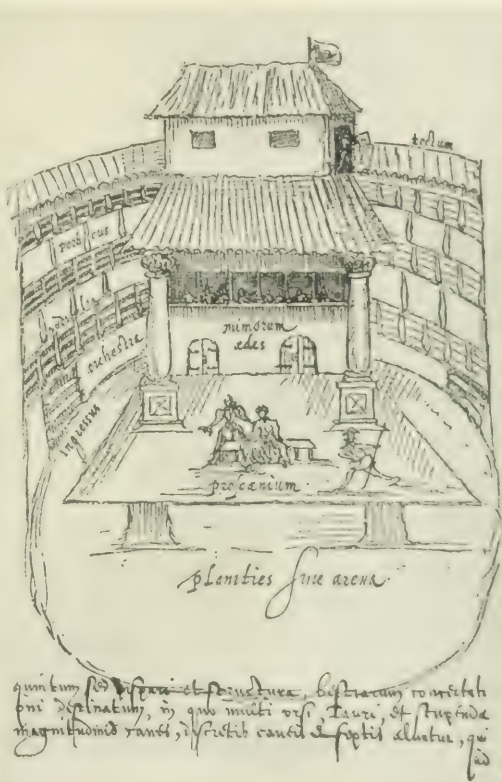 tectum
porticus
sedilia
orchestra
ingressus
mimorum
ædes
proscænium
planities siue arena
quintum sed dispari et structura, bestiarum concertati
oni destinatum, in quo multi vrsi, Tauri, et stupendæ
magnitudinis canes, discretis caueis & septis aluntur, qui
ad